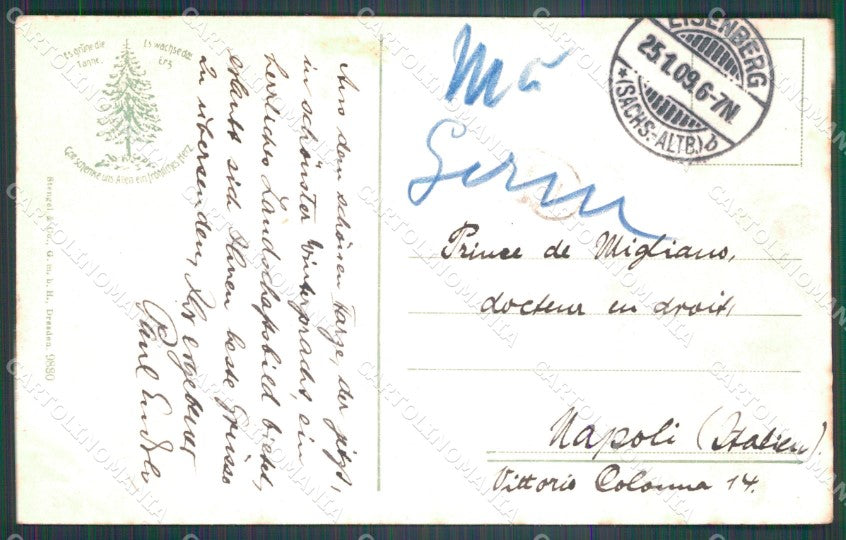 Es grüne die Tanne,
Es wachse das Erz
Gott schenke uns Allen ein fröhliches Herz
Stengel & Co., G. m. b. H., Dresden. 9880
Aus dem schönen Harze, der jetzt,
in schönster Winterpracht, ein
herrliches Landschaftsbild bietet,
erlaubt sich Ihnen beste Grüsse
zu übersenden, Ihr ergebener
Paul
EISENBERG
25.1.09.6-7N.
*(SACHS.-ALTB.) b
Prince de Migliano,
docteur en droit,
Napoli (Italien).
Vittorio Colonna 14.
CARTOLINOMANIA